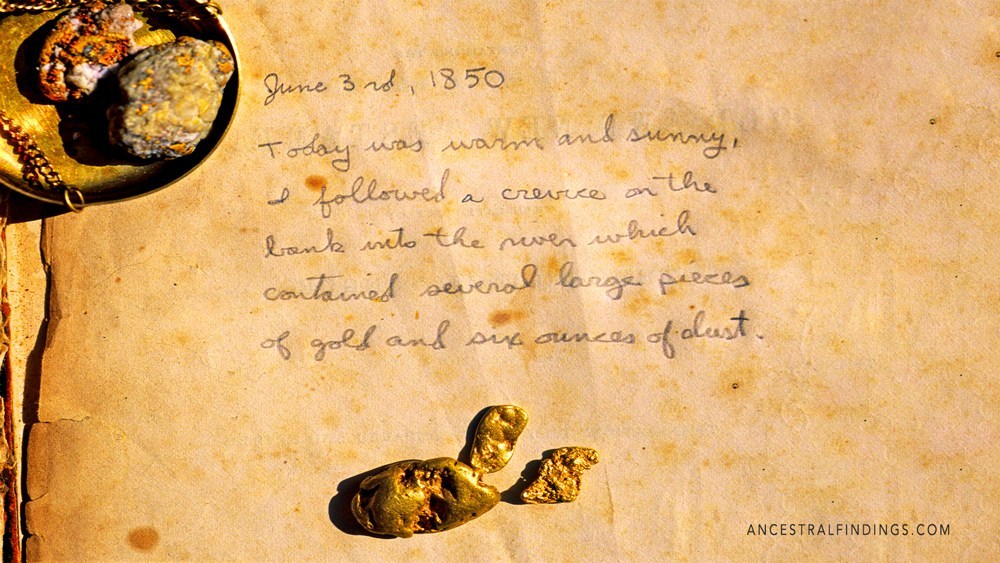 June 3rd, 1850
Today was warm and sunny,
I followed a crevice on the
bank into the river which
contained several large pieces
of gold and six ounces of dust.
ANCESTRALFINDINGS.COM